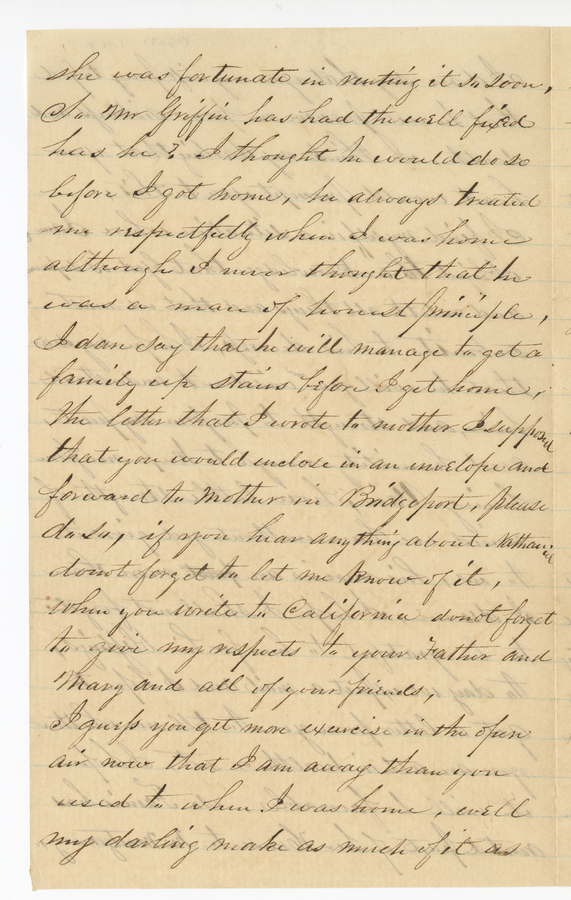 she was fortunate in renting it so soon,
So Mr Griffin has had the well fixed
has he? I thought he would do so
before I got home, he always treated
me respectfully when I was home
although I never thought that he
was a man of honest principle,
I dare say that he will manage to get a
family up stairs before I get home,
the letter that I wrote to mother I supposed
that you would enclose in an envelope and
forward to Mother in Bridgeport, please
do so, if you hear anything about Nathaniel
donot forget to let me know of it,
when you write to California donot forget
to give my respects to your Father and
Mary and all of your friends,
I guess you get more exercise in the open
air now that I am away than you
used to when I was home, well
my darling make as much of it as